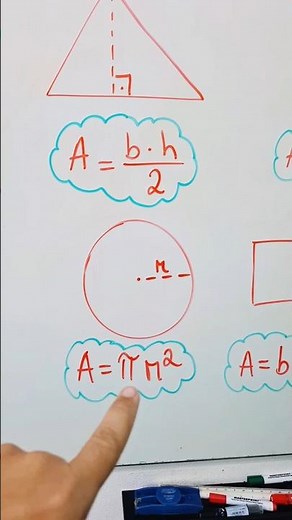 A = b · h / 2
r
A = πr²
A = b